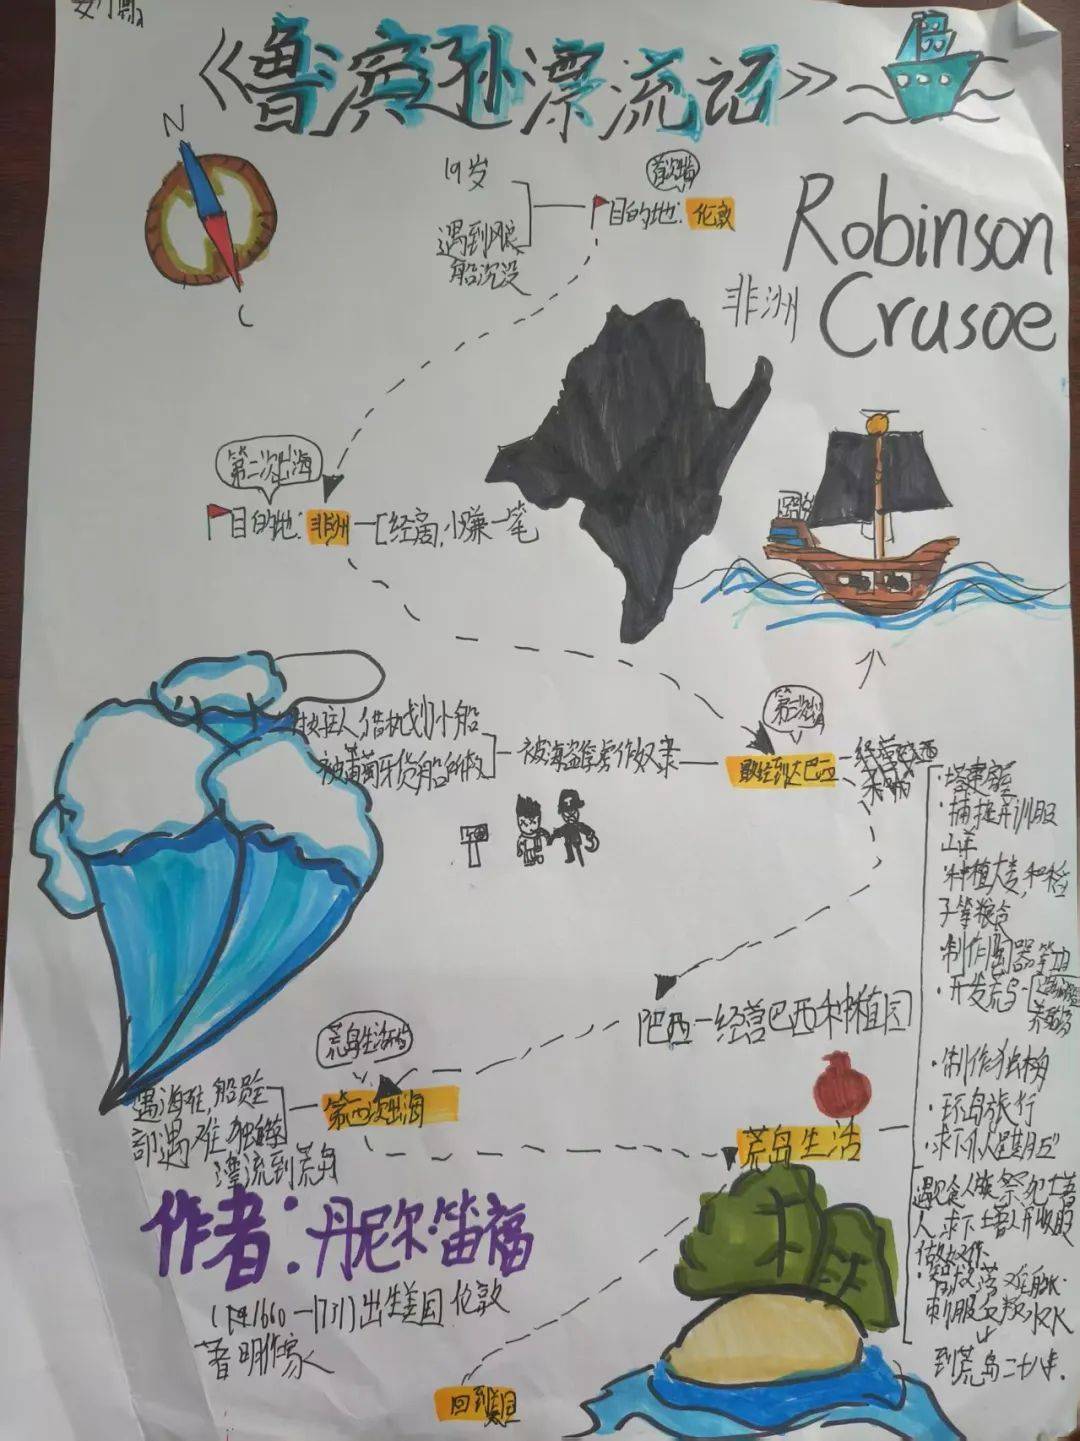 《鲁滨孙漂流记》
N
Robinson
Crusoe
19岁
遇到风浪
船沉没
首次出海
目的地：伦敦
非洲
第二次出海
目的地：非洲
经商，小赚一笔
第三次出海
被海盗俘虏作奴隶
主人借机划小船
被葡萄牙货船所救
最终到达巴西
巴西—经营巴西种植园
荒岛生活
第四次出海
遇海难，船员全
部遇难，独自
漂流到荒岛
荒岛生活
·搭建房屋
·捕捉并训服
山羊
种植大麦，和稻
子等粮食
制作陶器等
·开发荒岛
·制作独木舟
·环岛旅行
·求下仆人“星期五”
遇见食人族祭祀土著
人，求下土著人并收服
做奴仆
到荒岛二十八年.
作者：丹尼尔·笛福
1660—1731)出生美国伦敦
著明作家
回到英国